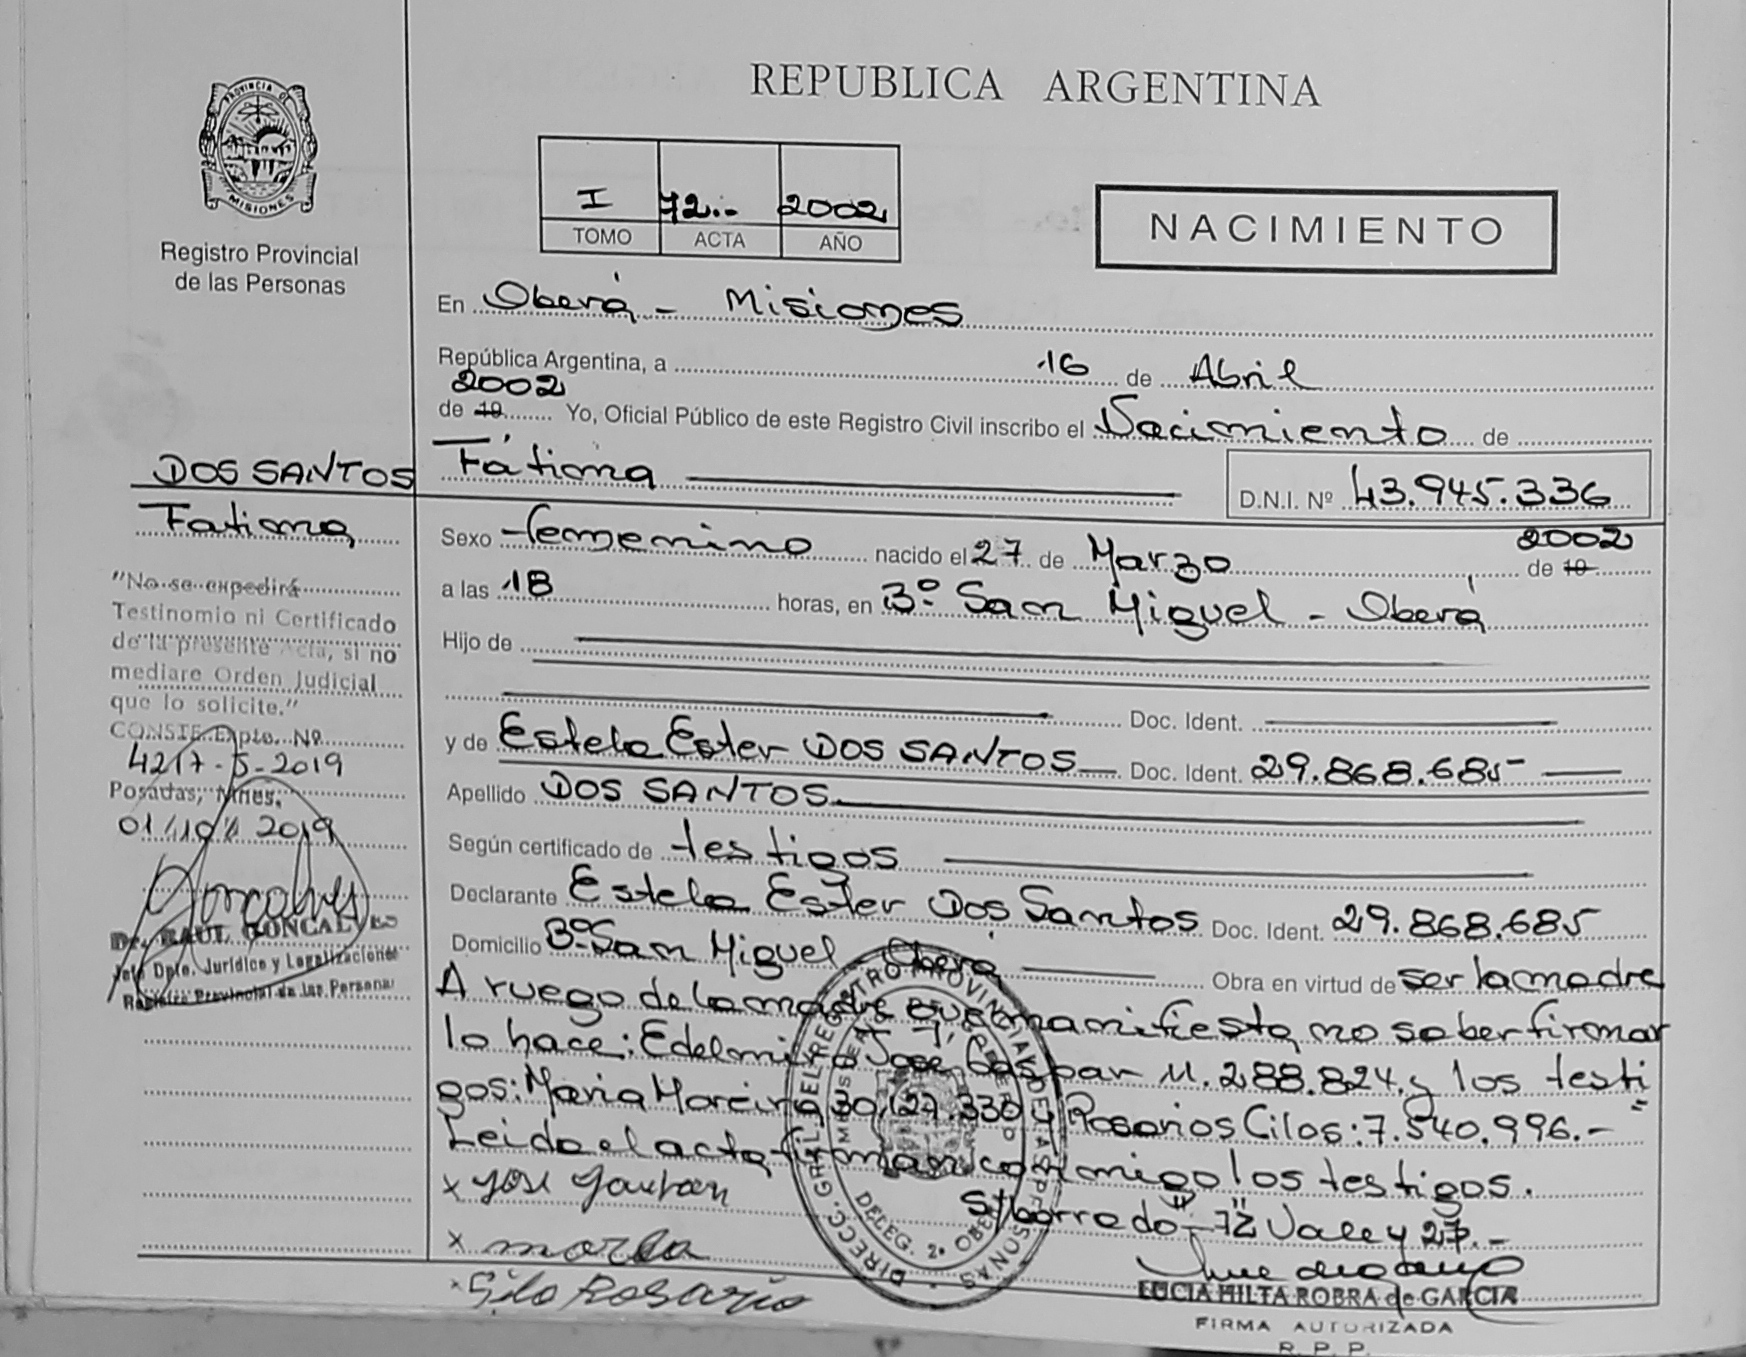 REPUBLICA ARGENTINA
PROVINCIA DE
MISIONES
Registro Provincial
de las Personas
I 72.- 2002
TOMO ACTA AÑO
NACIMIENTO
En Oberá - Misiones
República Argentina, a 16 de Abril
2002
de 19 Yo, Oficial Público de este Registro Civil inscribo el Nacimiento de
Fátima
D.N.I. Nº 43.945.336
DOS SANTOS
Fatima
2002
Sexo femenino nacido el 27 de Marzo de 19
a las 18 horas, en Bº San Miguel - Oberá
Hijo de
Doc. Ident.
y de Estela Ester DOS SANTOS Doc. Ident. 29.868.685-
Apellido DOS SANTOS
Según certificado de testigos
Declarante Estela Ester Dos Santos Doc. Ident. 29.868.685
Domicilio Bº San Miguel Oberá Obra en virtud de ser la madre
A ruego de la madre que manifiesta no saber firmar
lo hace: Edelmiro José Gaspar M. 288.824.y los testi
gos: Maria Moreira 30.127.330 y Rosarios Cilos: 7.540.996.-
Leido el acta firman conmigo los testigos.
S/borrado "72" Vale y 27.-
x José
x
Silo Rosario
"No se expedirá
Testinomio ni Certificado
de la presente Acta, si no
mediare Orden Judicial
que lo solicite."
CONSTE Expte. Nº
4217-5-2019
Posadas, Mnes,
01/10/2019
Dr. RAUL GONCALVES
Jefe Dpto. Jurídico y Legalizaciones
Registro Provincial de las Personas
DIRECC. GRAL. DEL REGISTRO PROVINCIAL DE LAS PERSONAS
DELEG. 2º OBERA
LUCIA HILTA ROBRA de GARCIA
FIRMA AUTORIZADA
R. P. P.